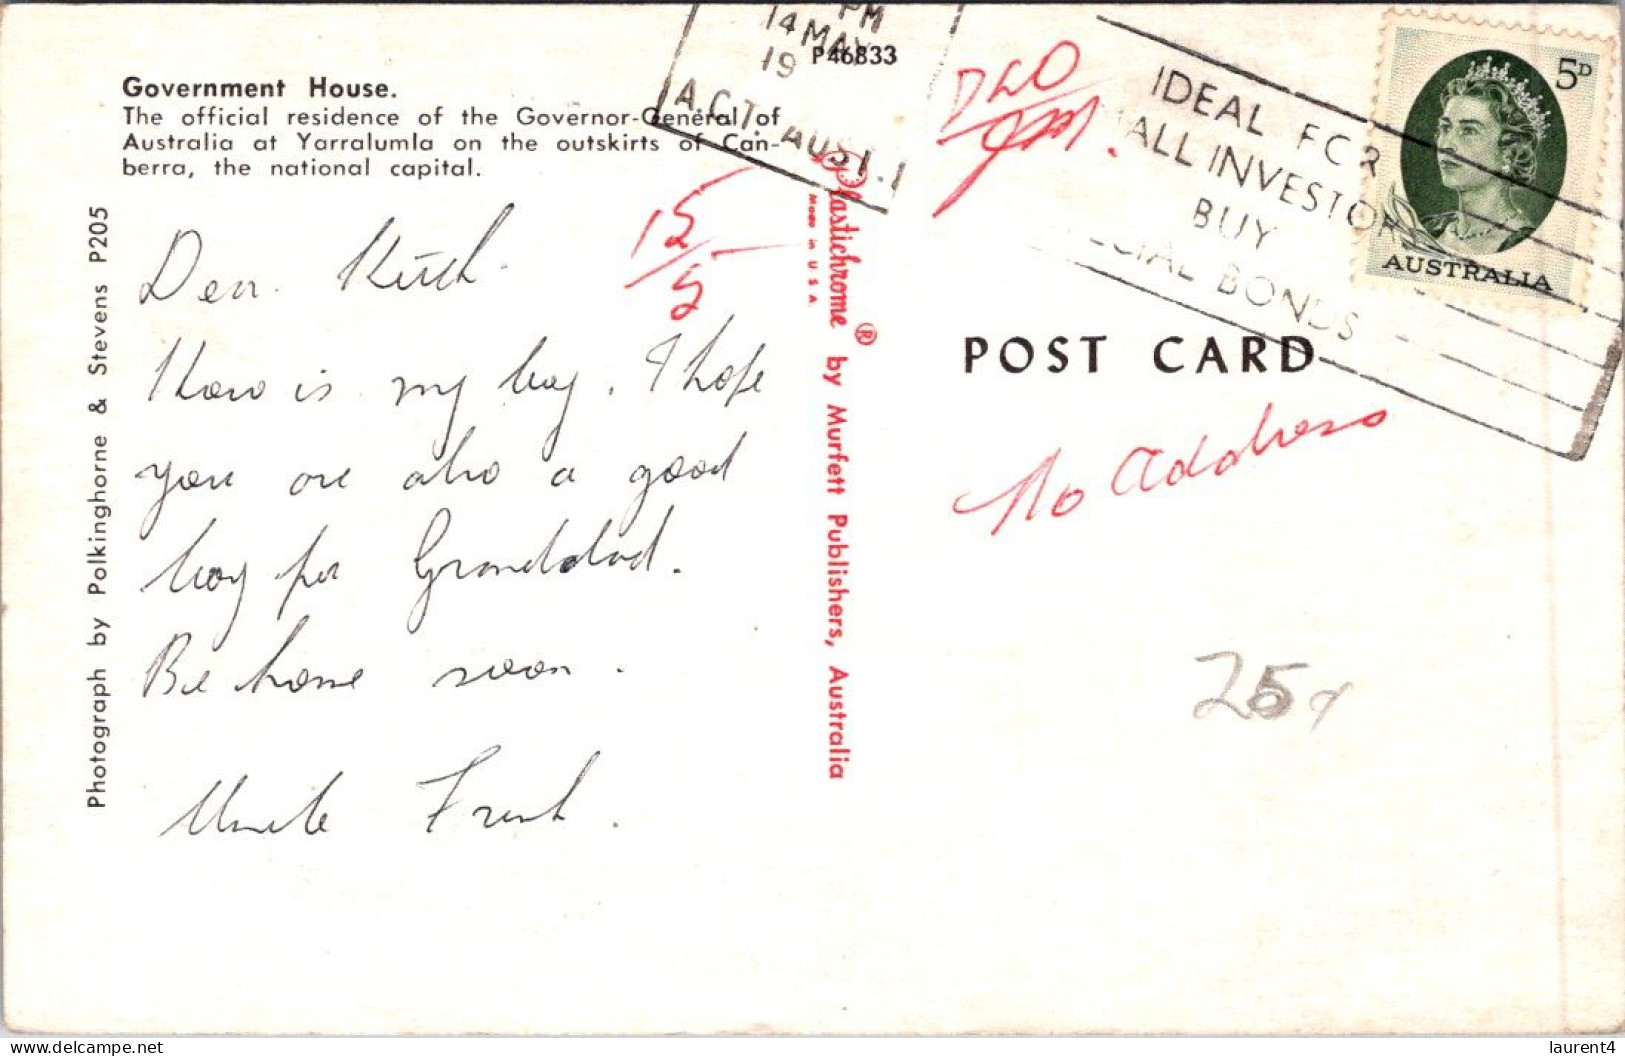 PM
14 MAY
19
A.C.T. AUST.
P46833
Government House.
The official residence of the Governor-General of
Australia at Yarralumla on the outskirts of Can-
berra, the national capital.
Photograph by Polkinghorne & Stevens P205
Dear Keith
How is my boy. I hope
you are also a good
boy for Granddad.
Be home soon.
Uncle Frank.
15/5
Plastichrome ® by Murfett Publishers, Australia
Made in U S A
DLO
IDEAL FOR
ALL INVESTOR
BUY
CIAL BONDS
5D
AUSTRALIA
POST CARD
No Address
25
delcampe.net
laurent4